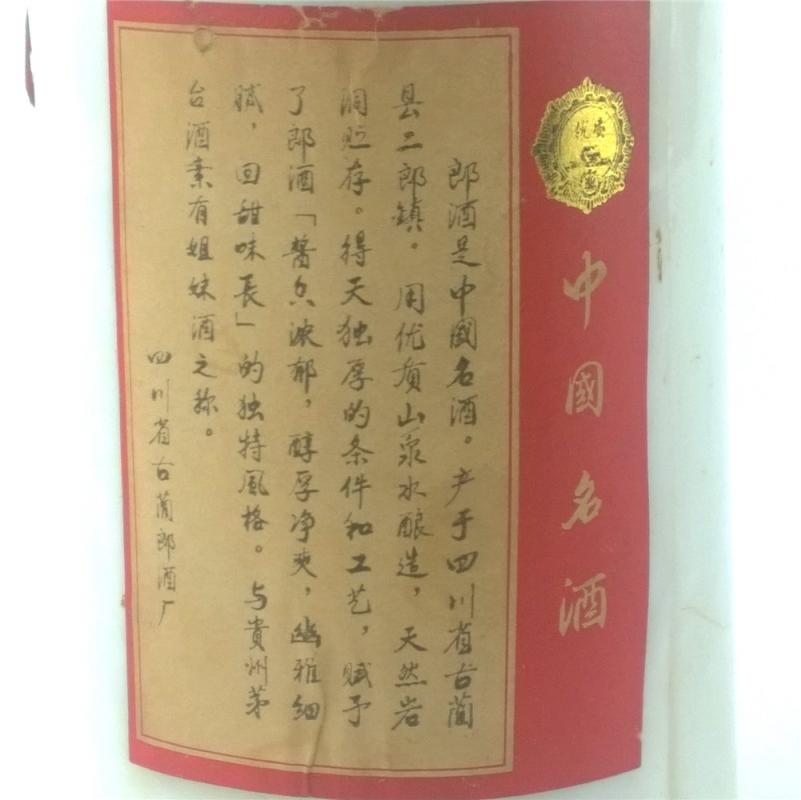 优质
中國名酒
郎酒是中國名酒。产于四川省古蔺
县二郎鎮。用优質山泉水酿造，天然岩
洞贮存。得天独厚的条件和工艺，赋予
了郎酒「醬香浓郁，醇厚净爽，幽雅细
腻，回甜味長」的独特風格。与貴州茅
台酒素有姐妹酒之称。
四川省古蔺郎酒厂